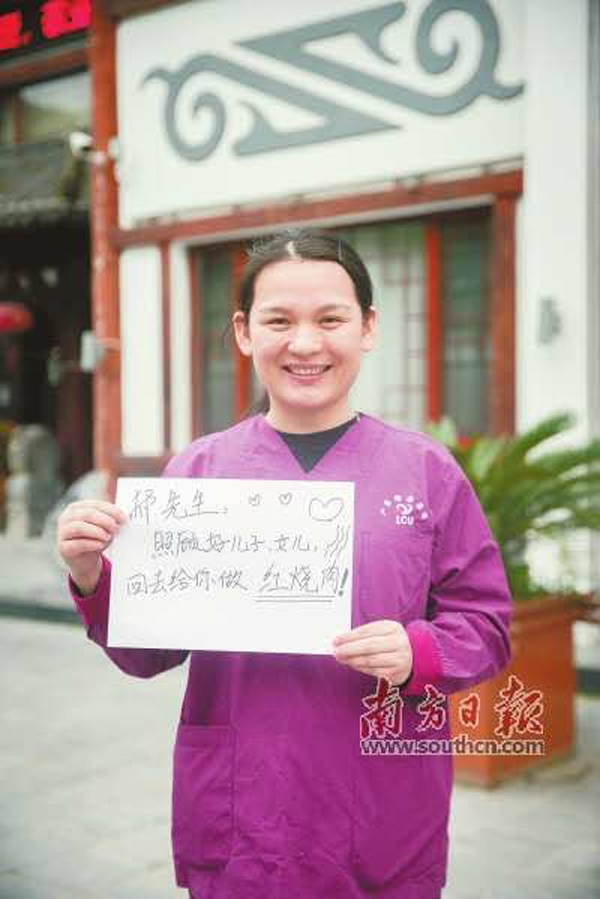 邢先生:
照顾好儿子、女儿,
回去给你做 红烧肉!
ICU
南方日报
www.southcn.com